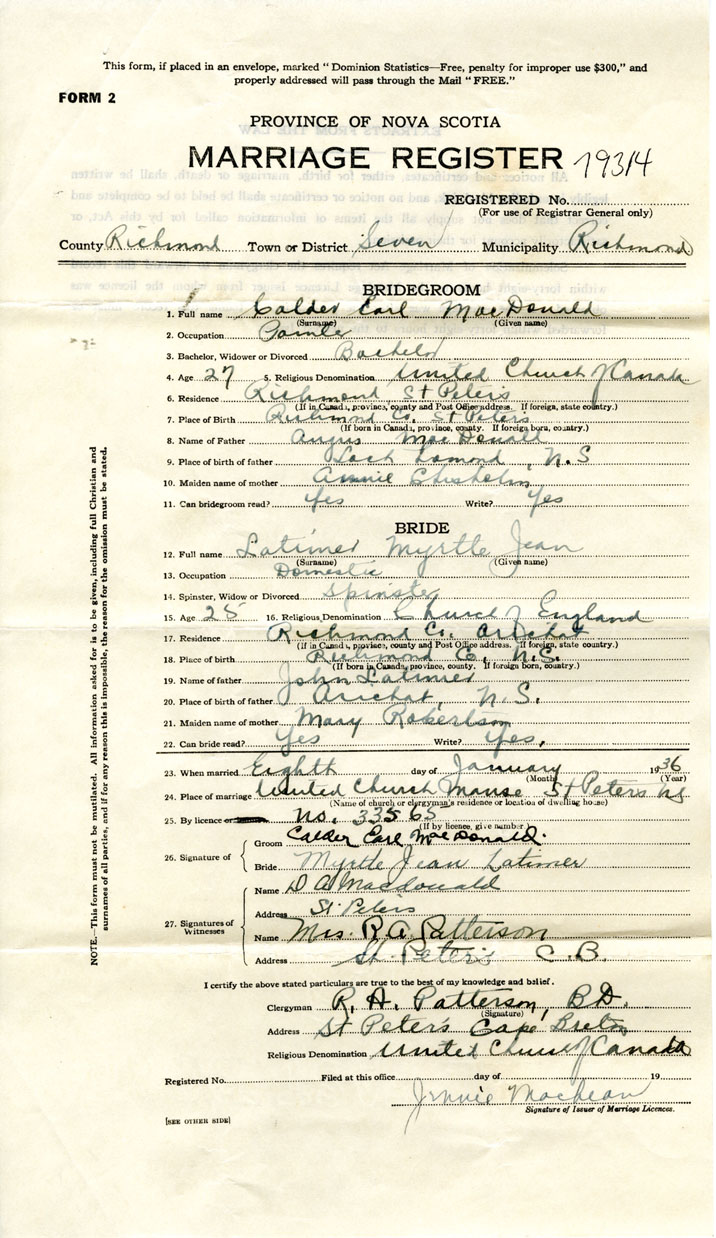 This form, if placed in an envelope, marked "Dominion Statistics—Free, penalty for improper use $300," and
properly addressed will pass through the Mail "FREE."
FORM 2
PROVINCE OF NOVA SCOTIA
MARRIAGE REGISTER 19314
REGISTERED No.
(For use of Registrar General only)
County Richmond Town or District Seven Municipality Richmond
BRIDEGROOM
1. Full name Calder Carl MacDonald
(Surname) (Given name)
2. Occupation
3. Bachelor, Widower or Divorced Bachelor
4. Age 27 5. Religious Denomination United Church of Canada
6. Residence Richmond St Peters
(If in Canada, province, county and Post Office address. If foreign, state country.)
7. Place of Birth Richmond Co. St Peters
(If born in Canada, province, county. If foreign born, country.)
8. Name of Father Angus MacDonald
9. Place of birth of father Loch Lomond, N.S
10. Maiden name of mother Annie Chisholm
11. Can bridegroom read? Yes Write? Yes
BRIDE
12. Full name Latimer Myrtle Jean
(Surname) (Given name)
13. Occupation Domestic
14. Spinster, Widow or Divorced Spinster
15. Age 25 16. Religious Denomination Church of England
17. Residence Richmond Co. Arichat
(If in Canada, province, county and Post Office address. If foreign, state country.)
18. Place of birth Richmond Co., N.S.
(If born in Canada, province, county. If foreign born, country.)
19. Name of father John Latimer
20. Place of birth of father Arichat, N.S.
21. Maiden name of mother Mary Robertson
22. Can bride read? Yes Write? Yes,
23. When married Eighth day of January 1936
(Month) (Year)
24. Place of marriage United Church Manse St Peters NS
(Name of church or clergyman's residence or location of dwelling house)
25. By licence No. 33565
(If by licence, give number)
26. Signature of
Groom Calder Carl MacDonald.
Bride Myrtle Jean Latimer
27. Signatures of Witnesses
Name D A Macdonald
Address St. Peters
Name Mrs. R.A. Patterson
Address St. Peter's C.B.
I certify the above stated particulars are true to the best of my knowledge and belief.
Clergyman R. A. Patterson, B.D.
(Signature)
Address St Peters Cape Breton
Religious Denomination United Church of Canada
Registered No. Filed at this office day of 19
Jennie MacLean
Signature of Issuer of Marriage Licences.
[SEE OTHER SIDE]
NOTE.—This form must not be mutilated. All information asked for is to be given, including full Christian and
surnames of all parties, and if for any reason this is impossible, the reason for the omission must be stated.